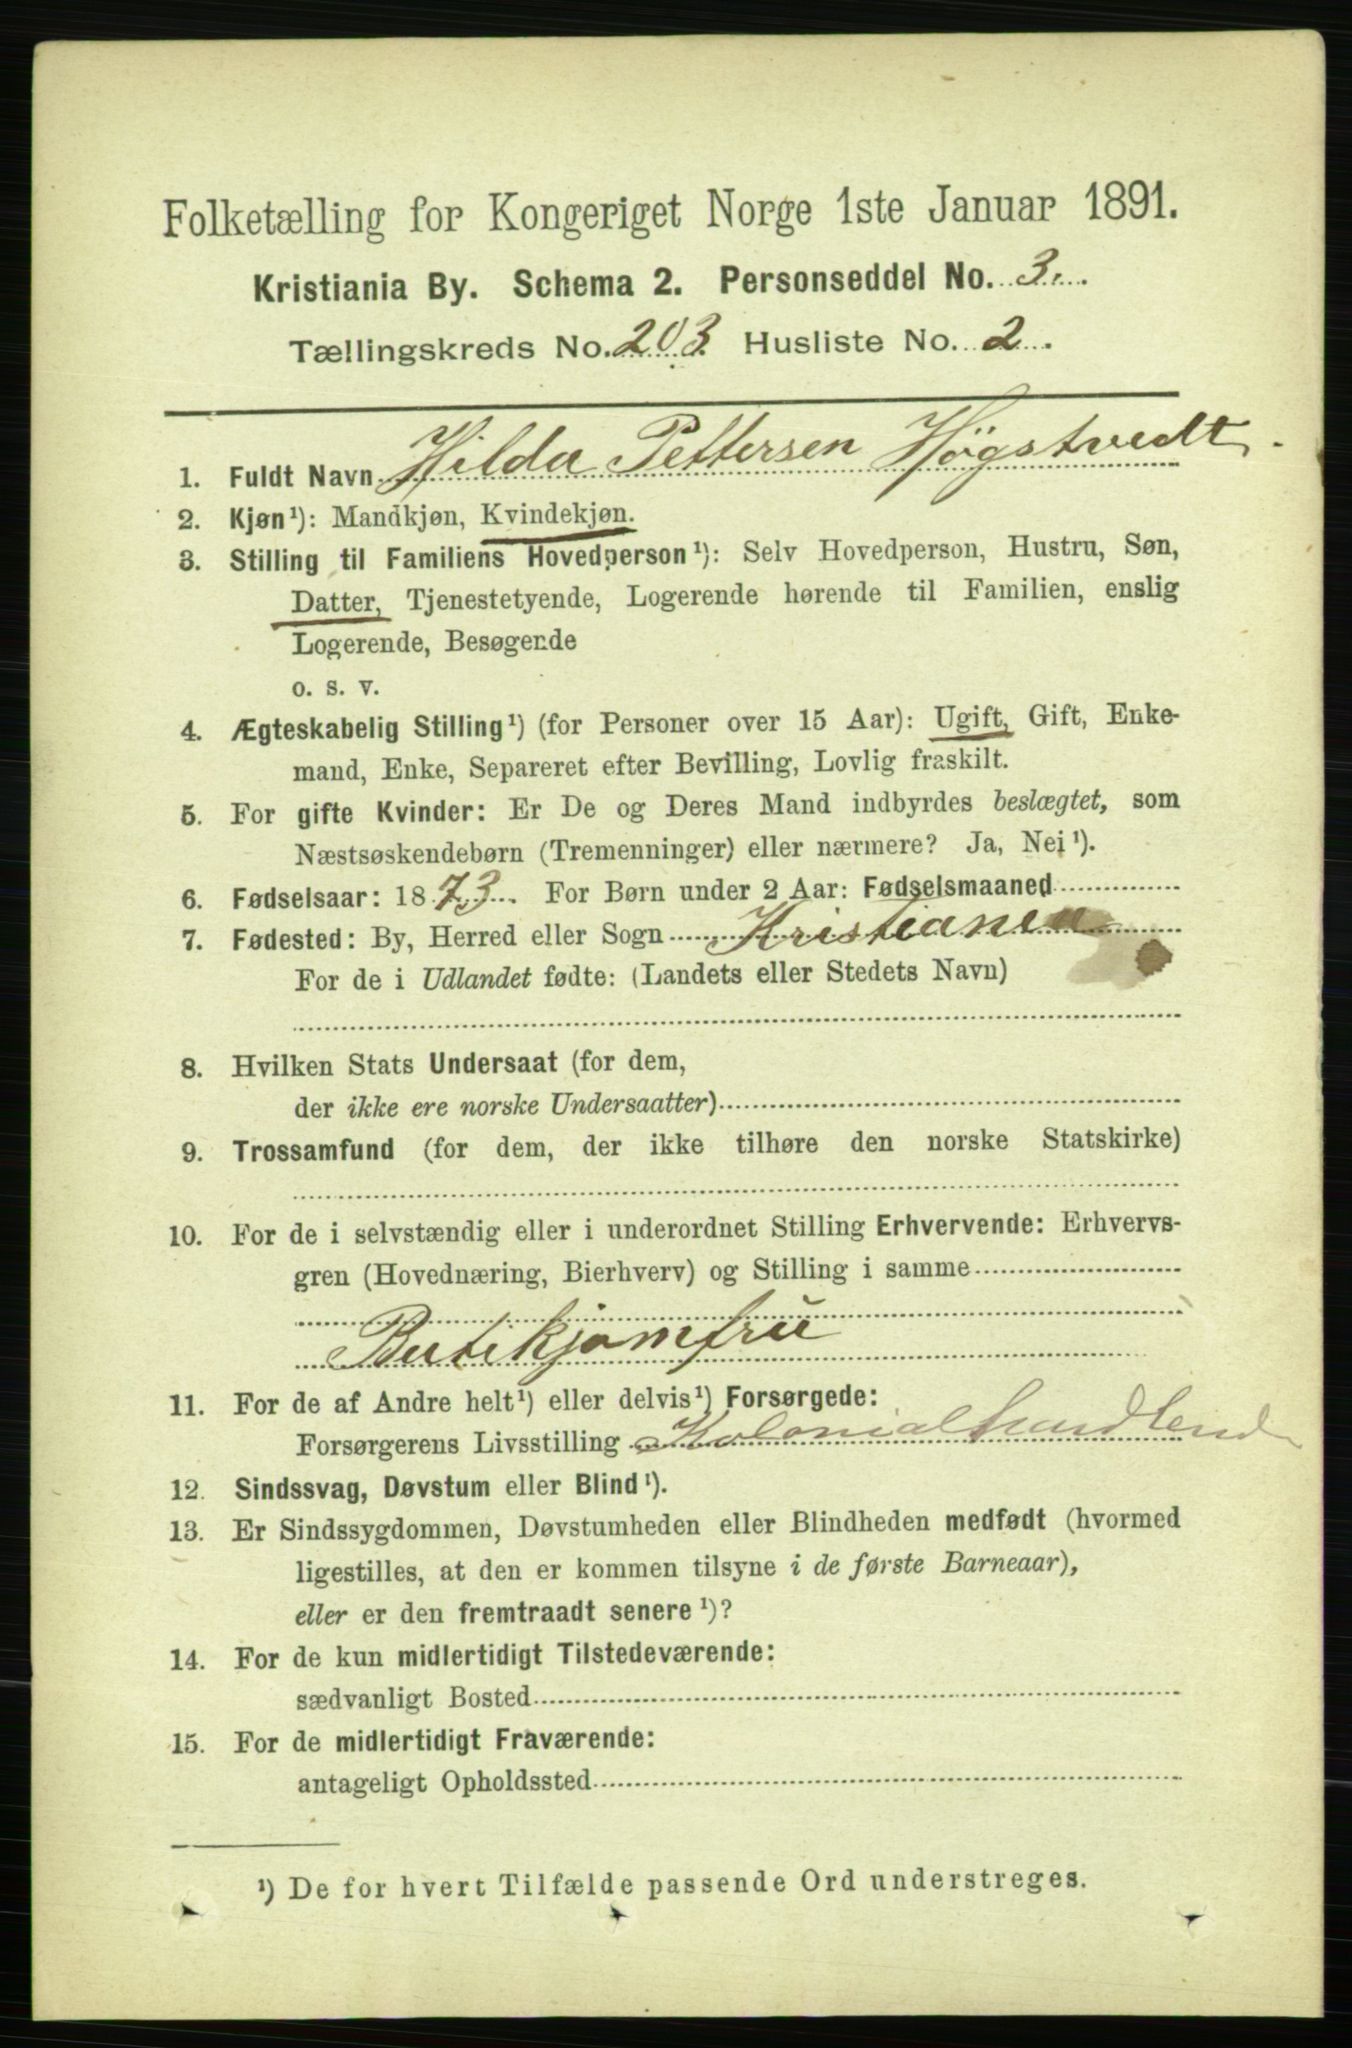 Folketælling for Kongeriget Norge 1ste Januar 1891.
Kristiania By. Schema 2. Personseddel No. 3.
Tællingskreds No. 203. Husliste No. 2.
1. Fuldt Navn Hilda Pettersen Högstvedt.
2. Kjøn¹): Mandkjøn, Kvindekjøn.
3. Stilling til Familiens Hovedperson¹): Selv Hovedperson, Hustru, Søn,
Datter, Tjenestetyende, Logerende hørende til Familien, enslig
Logerende, Besøgende
o. s. v.
4. Ægteskabelig Stilling¹) (for Personer over 15 Aar): Ugift, Gift, Enke-
mand, Enke, Separeret efter Bevilling, Lovlig fraskilt.
5. For gifte Kvinder: Er De og Deres Mand indbyrdes beslægtet, som
Næstsøskendebørn (Tremenninger) eller nærmere? Ja, Nei¹).
6. Fødselsaar: 1873. For Børn under 2 Aar: Fødselsmaaned
7. Fødested: By, Herred eller Sogn Kristiania
For de i Udlandet fødte: (Landets eller Stedets Navn)
8. Hvilken Stats Undersaat (for dem,
der ikke ere norske Undersaatter)
9. Trossamfund (for dem, der ikke tilhøre den norske Statskirke)
10. For de i selvstændig eller i underordnet Stilling Erhvervende: Erhvervs-
gren (Hovednæring, Bierhverv) og Stilling i samme
Butikjomfru
11. For de af Andre helt¹) eller delvis¹) Forsørgede:
Forsørgerens Livsstilling Kolonialhandlend
12. Sindssvag, Døvstum eller Blind¹).
13. Er Sindssygdommen, Døvstumheden eller Blindheden medfødt (hvormed
ligestilles, at den er kommen tilsyne i de første Barneaar),
eller er den fremtraadt senere¹)?
14. For de kun midlertidigt Tilstedeværende:
sædvanligt Bosted
15. For de midlertidigt Fraværende:
antageligt Opholdssted
¹) De for hvert Tilfælde passende Ord understreges.